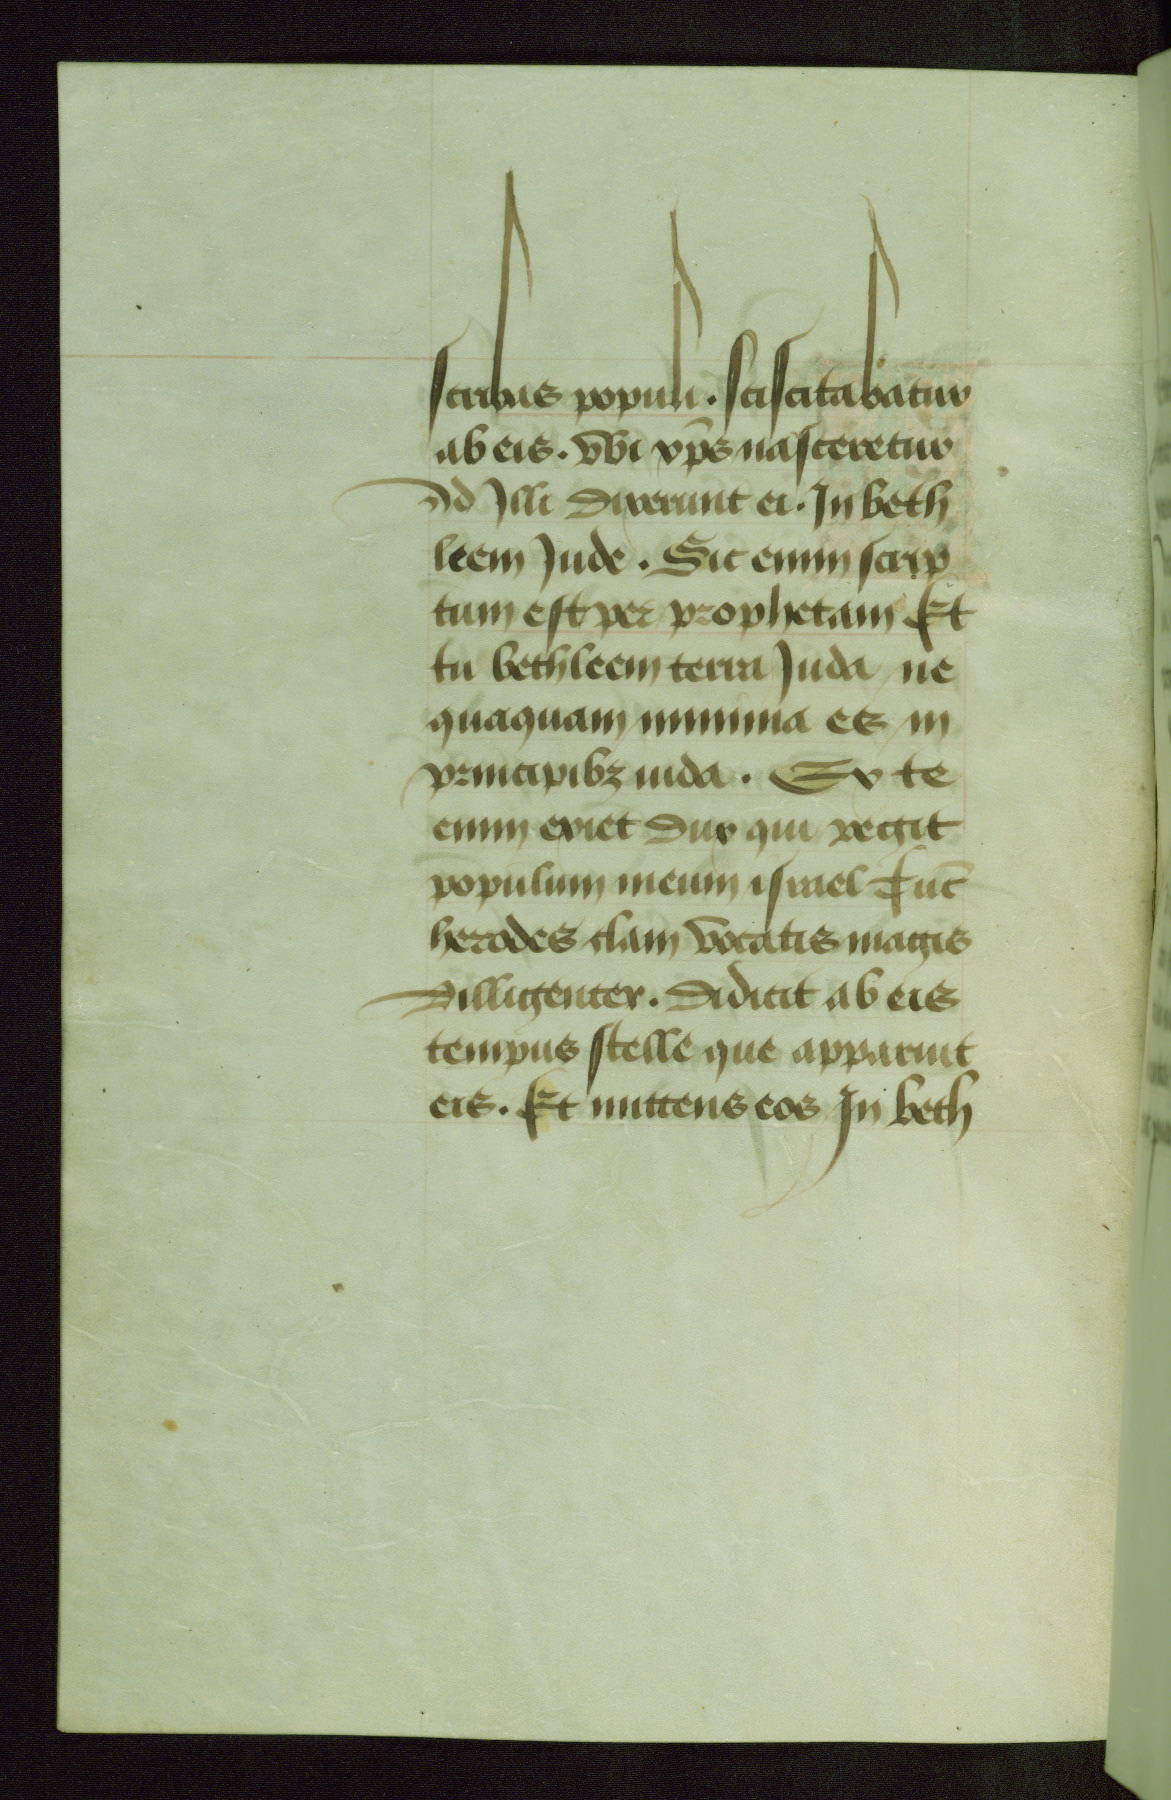 scribas populi. sciscitabatur
ab eis. vbi xp̄s nasceretur
Ad Illi dixerunt ei. In beth
leem Jude. Sic enim scrip
tum est per prophetam Et
tu bethleem terra Juda ne
quaquam minima es in
principibꝫ iuda. Ex te
enim exiet dux qui regit
populum meum israel Tūc
herodes clam vocatis magis
dilligenter. didicit ab eis
tempus stelle que apparuit
eis. Et mittens eos In beth